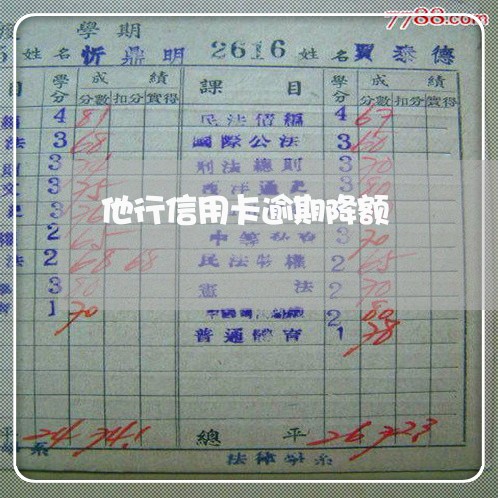 7788.com
學期
姓名 忻鼎明 2616 姓名 賈泰德
目 學分 成績 課目 學分 成績
分數 扣分 實得 分數 扣分 實得
4 81 民法債編 4 67
法 3 68 國際公法 3 60
3 刑法總則 3 70
文 3 75 3
他行信用卡逾期降额
2 65 3 70
法 2 68 68 民法物權 2 65
3 80 憲法 2 70
1 70 2 80
普通體育 1 78
平 24 74.1 總平 26 72.3
系 法律學系